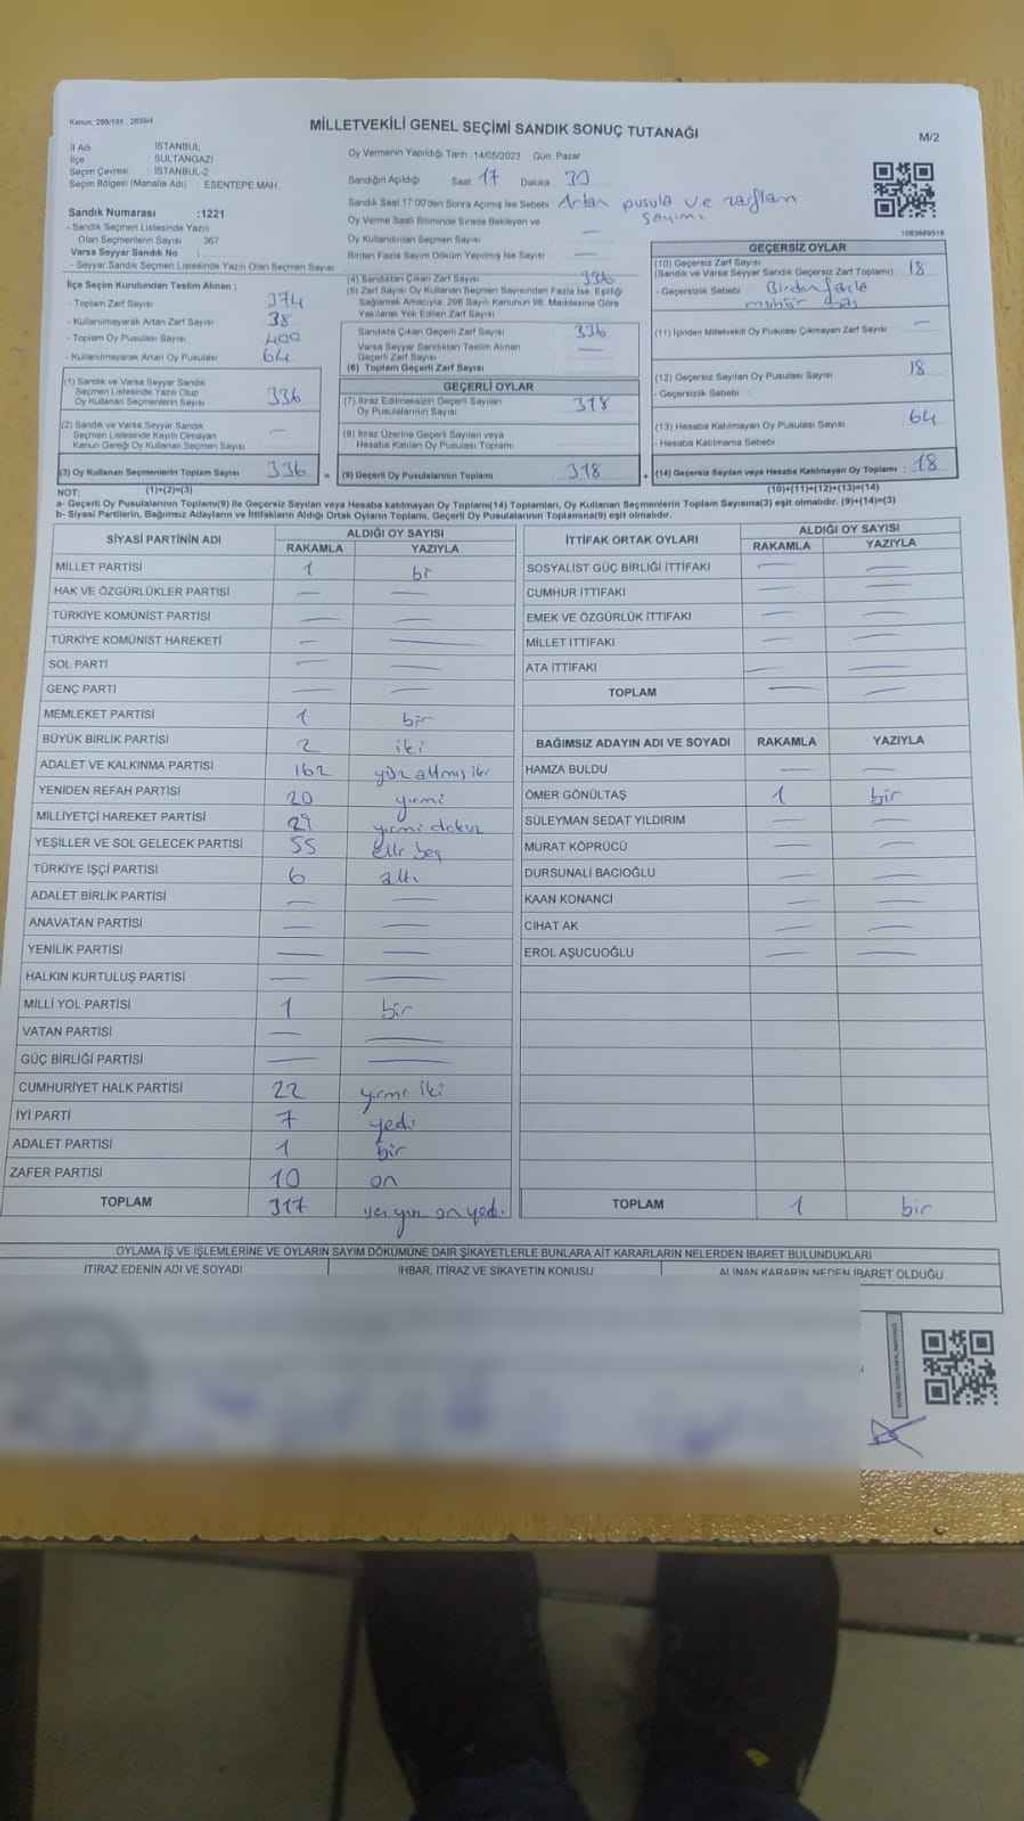 MİLLETVEKİLİ GENEL SEÇİMİ SANDIK SONUÇ TUTANAĞI
M/2
İl Adı İSTANBUL
İlçe SULTANGAZİ
Seçim Çevresi : İSTANBUL-2
Seçim Bölgesi (Mahalle Adı) : ESENTEPE MAH.
Oy Vermenin Yapıldığı Tarih :14/05/2023 Gün: Pazar
Sandığın Açıldığı Saat 17 Dakika 30
Sandık Saat 17:00'den Sonra Açılmış İse Sebebi Artan pusula ve zarfların sayımı
Oy Verme Saati Bitiminde Sırada Bekleyen ve
Oy Kullandırılan Seçmen Sayısı —
Birden Fazla Sayım Döküm Yapılmış İse Sayısı —
Sandık Numarası :1221
- Sandık Seçmen Listesinde Yazılı
Olan Seçmenlerin Sayısı : 367
Varsa Seyyar Sandık No :
- Seyyar Sandık Seçmen Listesinde Yazılı Olan Seçmen Sayısı
İlçe Seçim Kurulundan Teslim Alınan :
- Toplam Zarf Sayısı 374
- Kullanılmayarak Artan Zarf Sayısı 38
- Toplam Oy Pusulası Sayısı 400
- Kullanılmayarak Artan Oy Pusulası 64
(1) Sandık ve Varsa Seyyar Sandık
Seçmen Listesinde Yazılı Olup
Oy Kullanan Seçmenlerin Sayısı 336
(2) Sandık ve Varsa Seyyar Sandık
Seçmen Listesinde Kayıtlı Olmayan
Kanun Gereği Oy Kullanan Seçmen Sayısı —
(3) Oy Kullanan Seçmenlerin Toplam Sayısı 336
(1)+(2)=(3)
(4) Sandıktan Çıkan Zarf Sayısı 336
(5) Zarf Sayısı Oy Kullanan Seçmen Sayısından Fazla İse, Eşitliği
Sağlamak Amacıyla, 298 Sayılı Kanunun 98. Maddesine Göre
Yakılarak Yok Edilen Zarf Sayısı
Sandıkta Çıkan Geçerli Zarf Sayısı 336
Varsa Seyyar Sandıktan Teslim Alınan
Geçerli Zarf Sayısı —
(6) Toplam Geçerli Zarf Sayısı
GEÇERLİ OYLAR
(7) İtiraz Edilmeksizin Geçerli Sayılan
Oy Pusulalarının Sayısı 318
(8) İtiraz Üzerine Geçerli Sayılan veya
Hesaba Katılan Oy Pusulası Toplamı
(9) Geçerli Oy Pusulalarının Toplamı 318
GEÇERSİZ OYLAR
(10) Geçersiz Zarf Sayısı
(Sandık ve Varsa Seyyar Sandık Geçersiz Zarf Toplamı) 18
- Geçersizlik Sebebi Birden fazla
mühür
(11) İçinden Milletvekili Oy Pusulası Çıkmayan Zarf Sayısı —
(12) Geçersiz Sayılan Oy Pusulası Sayısı 18
- Geçersizlik Sebebi
(13) Hesaba Katılmayan Oy Pusulası Sayısı 64
- Hesaba Katılmama Sebebi
(14) Geçersiz Sayılan veya Hesaba Katılmayan Oy Toplamı : 18
(10)+(11)+(12)+(13)=(14)
NOT:
a- Geçerli Oy Pusulalarının Toplamı(9) İle Geçersiz Sayılan veya Hesaba katılmayan Oy Toplamı(14) Toplamları, Oy Kullanan Seçmenlerin Toplam Sayısına(3) eşit olmalıdır. (9)+(14)=(3)
b- Siyasi Partilerin, Bağımsız Adayların ve İttifakların Aldığı Ortak Oyların Toplamı, Geçerli Oy Pusulalarının Toplamına(9) eşit olmalıdır.
SİYASİ PARTİNİN ADI ALDIĞI OY SAYISI
RAKAMLA YAZIYLA
MİLLET PARTİSİ 1 bi
HAK VE ÖZGÜRLÜKLER PARTİSİ — —
TÜRKİYE KOMÜNİST PARTİSİ — —
TÜRKİYE KOMÜNİST HAREKETİ — —
SOL PARTİ — —
GENÇ PARTİ — —
MEMLEKET PARTİSİ 1 bir
BÜYÜK BİRLİK PARTİSİ 2 iki
ADALET VE KALKINMA PARTİSİ 162 yüz altmış iki
YENİDEN REFAH PARTİSİ 20 yirmi
MİLLİYETÇİ HAREKET PARTİSİ 29 yirmi dokuz
YEŞİLLER VE SOL GELECEK PARTİSİ 55 elli beş
TÜRKİYE İŞÇİ PARTİSİ 6 altı
ADALET BİRLİK PARTİSİ — —
ANAVATAN PARTİSİ — —
YENİLİK PARTİSİ — —
HALKIN KURTULUŞ PARTİSİ — —
MİLLİ YOL PARTİSİ 1 bir
VATAN PARTİSİ — —
GÜÇ BİRLİĞİ PARTİSİ — —
CUMHURİYET HALK PARTİSİ 22 yirmi iki
İYİ PARTİ 7 yedi
ADALET PARTİSİ 1 bir
ZAFER PARTİSİ 10 on
TOPLAM 317 on yedi
İTTİFAK ORTAK OYLARI ALDIĞI OY SAYISI
RAKAMLA YAZIYLA
SOSYALİST GÜÇ BİRLİĞİ İTTİFAKI — —
CUMHUR İTTİFAKI — —
EMEK VE ÖZGÜRLÜK İTTİFAKI — —
MİLLET İTTİFAKI — —
ATA İTTİFAKI — —
TOPLAM — —
BAĞIMSIZ ADAYIN ADI VE SOYADI RAKAMLA YAZIYLA
HAMZA BULDU — —
ÖMER GÖNÜLTAŞ 1 bir
SÜLEYMAN SEDAT YILDIRIM — —
MURAT KÖPRÜCÜ — —
DURSUNALİ BACIOĞLU — —
KAAN KONANCİ — —
CİHAT AK — —
EROL AŞUCUOĞLU — —
TOPLAM 1 bir
OYLAMA İŞ VE İŞLEMLERİNE VE OYLARIN SAYIM DÖKÜMÜNE DAİR ŞİKAYETLERLE BUNLARA AİT KARARLARIN NELERDEN İBARET BULUNDUKLARI
İTİRAZ EDENİN ADI VE SOYADI İHBAR, İTİRAZ VE ŞİKAYETİN KONUSU ALINAN KARARIN NEDEN İBARET OLDUĞU